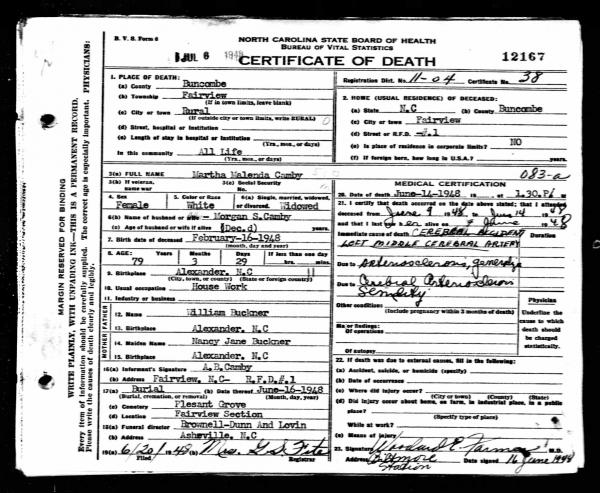 B. V. S. Form 6
NORTH CAROLINA STATE BOARD OF HEALTH
BUREAU OF VITAL STATISTICS
JUL 6 1948
CERTIFICATE OF DEATH
12167
Registration Dist. No. 11-04 Certificate No. 38
MARGIN RESERVED FOR BINDING
WRITE PLAINLY, WITH UNFADING INK—THIS IS A PERMANENT RECORD.
Every item of information should be carefully supplied. The correct age is especially important. PHYSICIANS:
Please write the causes of death clearly and legibly.
1. PLACE OF DEATH:
(a) County Buncombe
(b) Township Fairview
(If in town limits, leave blank)
(c) City or town Rural
(If outside city or town limits, write RURAL)
(d) Street, hospital or Institution
(e) Length of stay in hospital or Institution
(Yrs., mos., or days)
In this community All Life
(Yrs., mos., or days)
2. HOME (USUAL RESIDENCE) OF DECEASED:
(a) State N.C (b) County Buncombe
(c) City or town Fairview
(d) Street or R.F.D. #.1
(e) Is place of residence in corporate limits? NO
(f) If foreign born, how long in U.S.A.? years.
3(a) FULL NAME Martha Malenda Camby
083-a
3(b) If veteran, name war
3(c) Social Security No.
4. Sex Female
5. Color or Race White
6(a) Single, married, widowed or divorced. Widowed
6(b) Name of husband or Morgan S.Camby
(c) Age of husband or wife if alive (Dec.d)
7. Birth date of deceased February-16-1948
(month, day and year)
8. AGE: Years 79 Months 3 Days 29 If less than one day hrs. min.
9. Birthplace Alexander, N.C
(City, town, or county) (State or foreign country)
10. Usual occupation House Work
11. Industry or business
FATHER
12. Name William Buckner
13. Birthplace Alexander. N.C
MOTHER
14. Maiden Name Nancy Jane Buckner
15. Birthplace Alexander. N.C
16(a) Informant's Signature A.D.Camby
(b) Address Fairview, N.C- R.F.D.#.1
17(a) Burial (b) Date thereof June-16-1948
(Burial, cremation, or removal) (Month, day, year)
(c) Cemetery Plesant Grove
(d) Location Fairview Section
18(a) Funeral director Brownell-Dunn And Lovin
(b) Address Asheville, N.C
19(a) 6/20/1948 Mrs. G.S.
Filed Registrar
MEDICAL CERTIFICATION
20. Date of death June-14-1948, at 1.30.P. M
21. I certify that death occurred on the date above stated; that I attended
deceased from June 9 1948 to June 14 19
alive on June 1948
Immediate cause of death CEREBRAL ACCIDENT Duration
LEFT MIDDLE CEREBRAL ARTERY
Due to Arteriosclerosis,
Due to Cerebral Arteriosclerosis
Other condition: Senility
(Include pregnancy within 3 months of death)
Major findings:
Of operations
Of autopsy
Physician
Underline the cause to which death should be charged statistically.
22. If death was due to external causes, fill in the following:
(a) Accident, suicide, or homicide (specify)
(b) Date of occurrence
(c) Where did injury occur?
(City or town) (County) (State)
(d) Did injury occur about home, on farm, in industrial place, in public place?
(Specify type of place)
While at work?
(e) Means of injury
23. Signature M.D.
Address Biltmore Station Date signed 16 June 1948